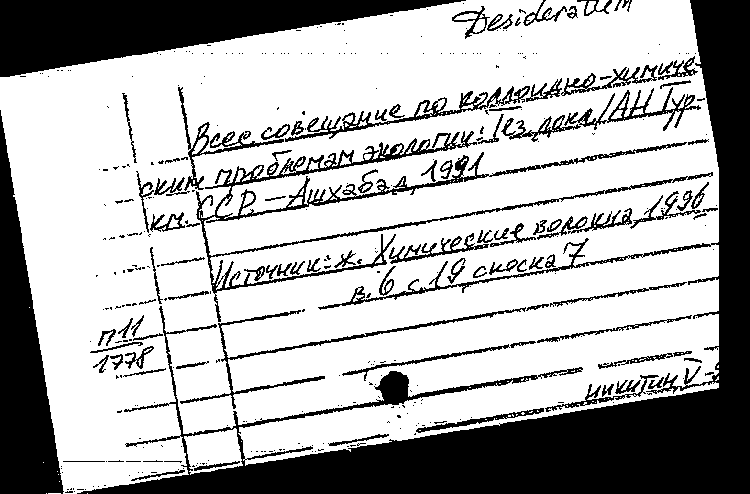 Desideratum
Всес. совещание по коллоидно-химиче-
ским проблемам экологии: Тез. докл./АН Тур-
км. ССР. – Ашхабад, 1991
Источник: ж. Химические волокна, 1996
в. 6, с. 19, сноска 7
п11
1778
никитин V-